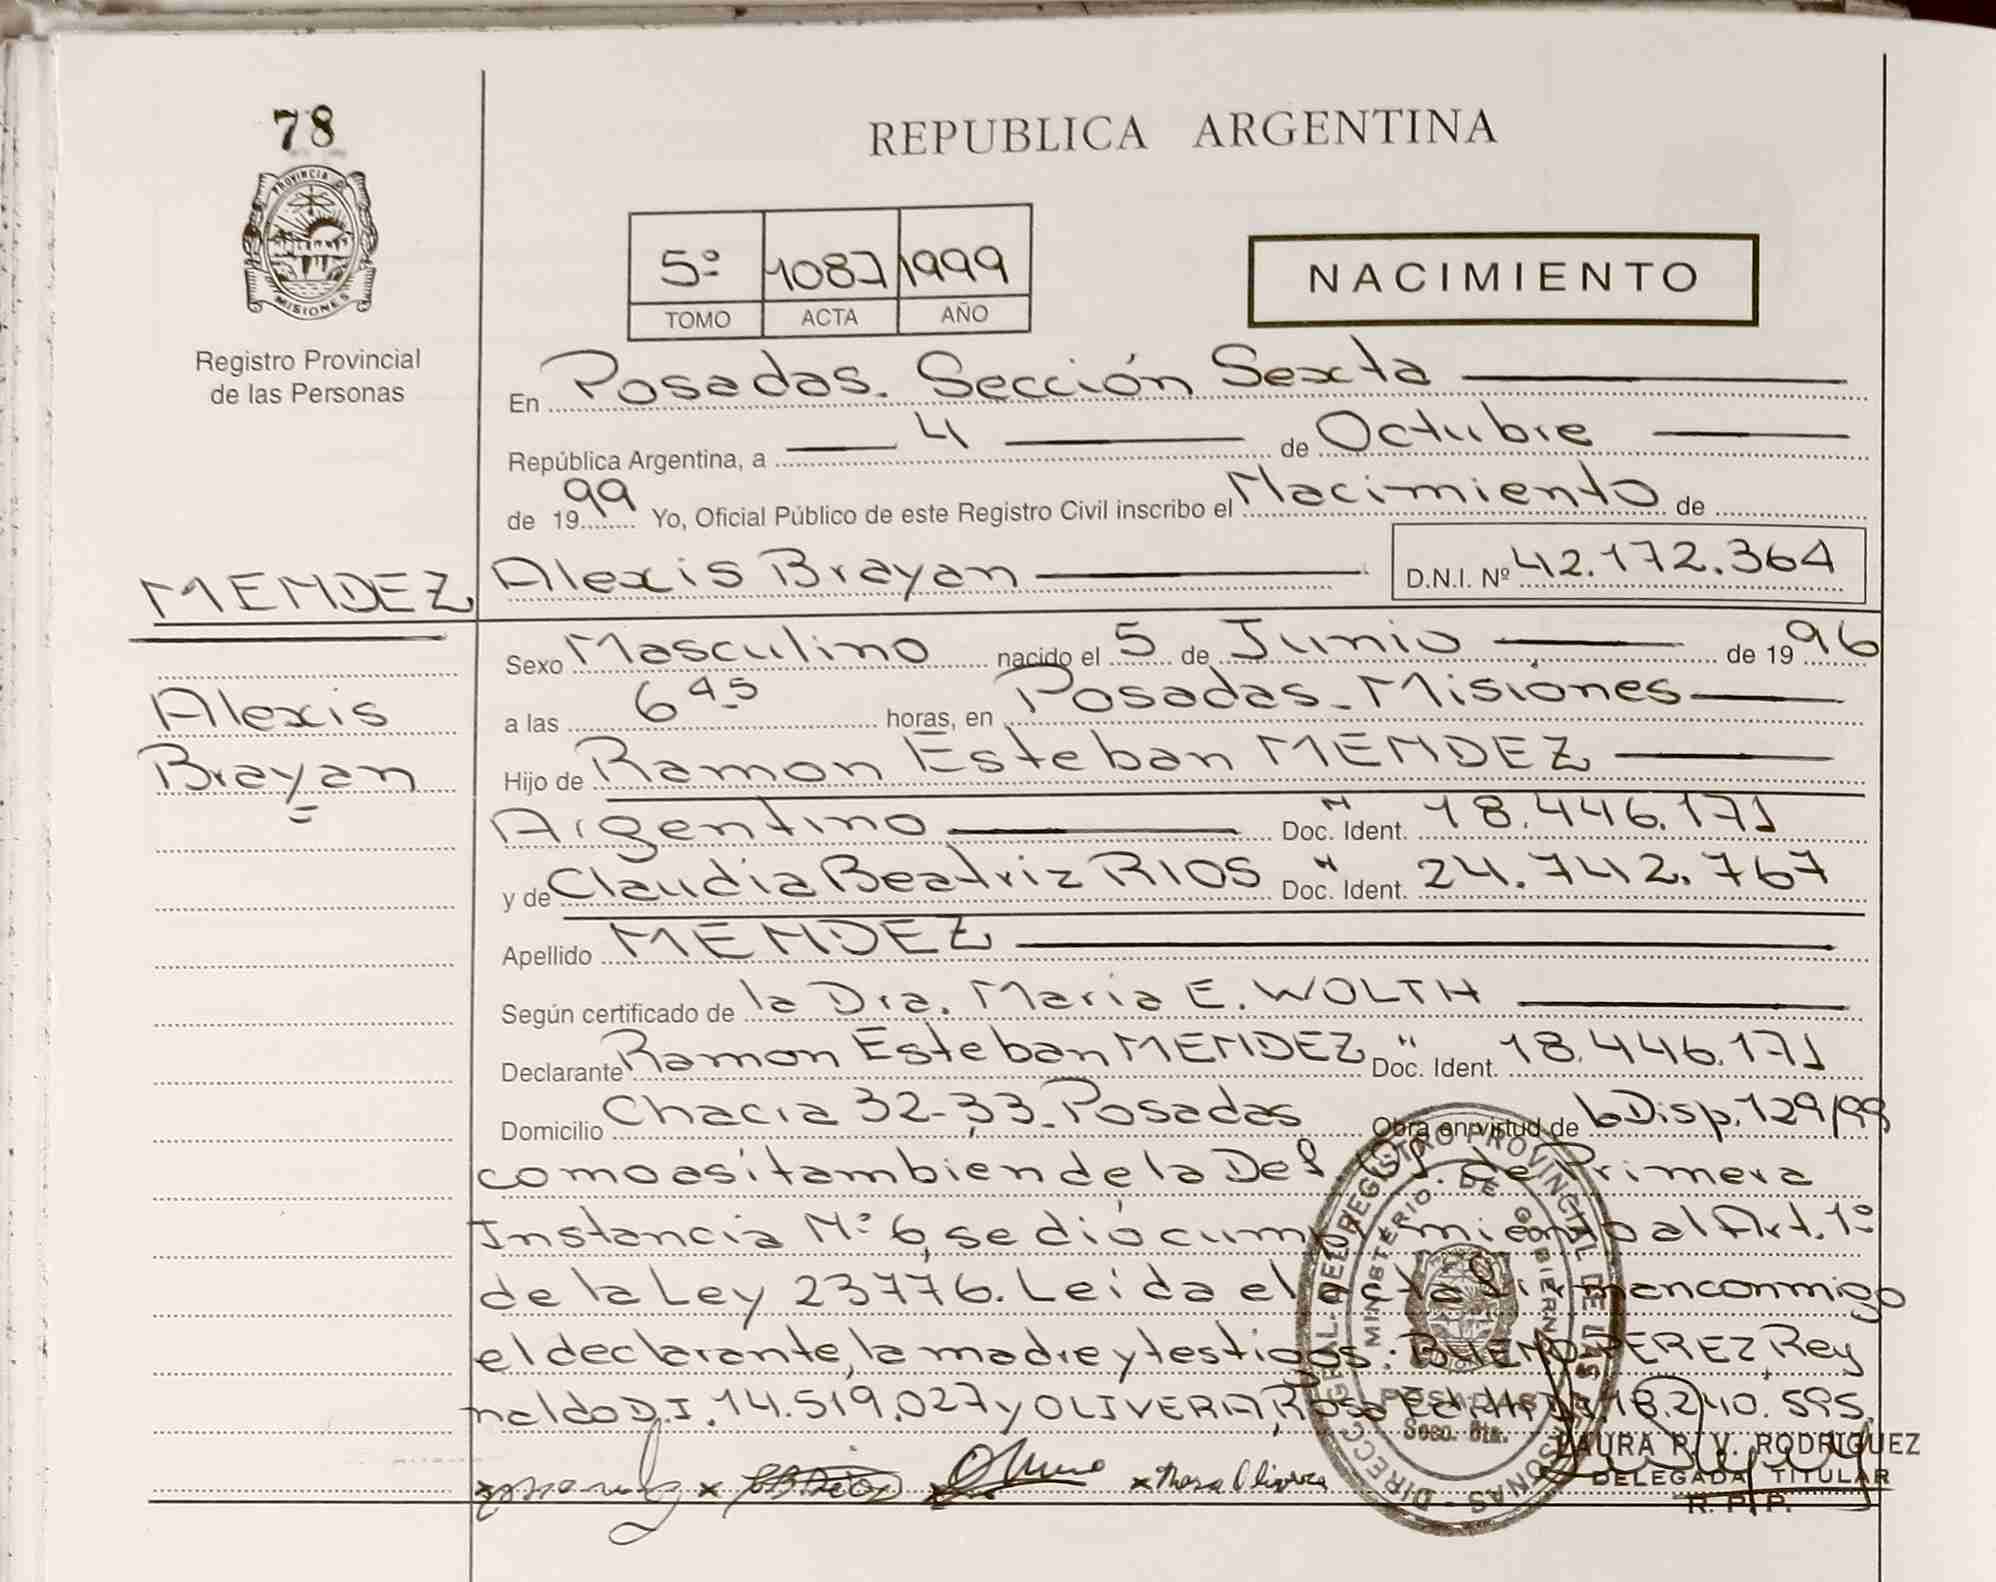 78
PROVINCIA DE
MISIONES
Registro Provincial
de las Personas
REPUBLICA ARGENTINA
5º 1087 1999
TOMO ACTA AÑO
NACIMIENTO
En Posadas. Sección Sexta
República Argentina, a 4 de Octubre
de 1999 Yo, Oficial Público de este Registro Civil inscribo el Nacimiento de
MENDEZ Alexis Brayan D.N.I. Nº 42.172.364
Sexo Masculino nacido el 5 de Junio de 1996
Alexis
a las 6 45 horas, en Posadas - Misiones
Brayan
Hijo de Ramon Esteban MENDEZ
Argentino Doc. Ident. 18.446.171
y de Claudia Beatriz RIOS Doc. Ident. 24.742.767
Apellido MENDEZ
Según certificado de la Dra. Maria E. WOLTH
Declarante Ramon Esteban MENDEZ Doc. Ident. 18.446.171
Domicilio Chacra 32-33 - Posadas Obra en virtud de la Disp. 129/99
como asi tambien de la Def. Of. de Primera
Instancia Nº 6, se dió cumplimiento al Art. 1º
de la Ley 23776. Leida el acta firman conmigo
el declarante, la madre y testigos: BUENO PEREZ Rey
naldo D.I. 14.519.027 y OLIVERA, Rosa 18.240.595.
x x x x Rosa Olivera
DIRECC. GRAL. DEL REGISTRO PROVINCIAL DE LAS PERSONAS
MINISTERIO DE GOBIERNO
MISIONES
POSADAS
Secc. 6ta.
LAURA R. V. RODRIGUEZ
DELEGADA TITULAR
R. P. P.